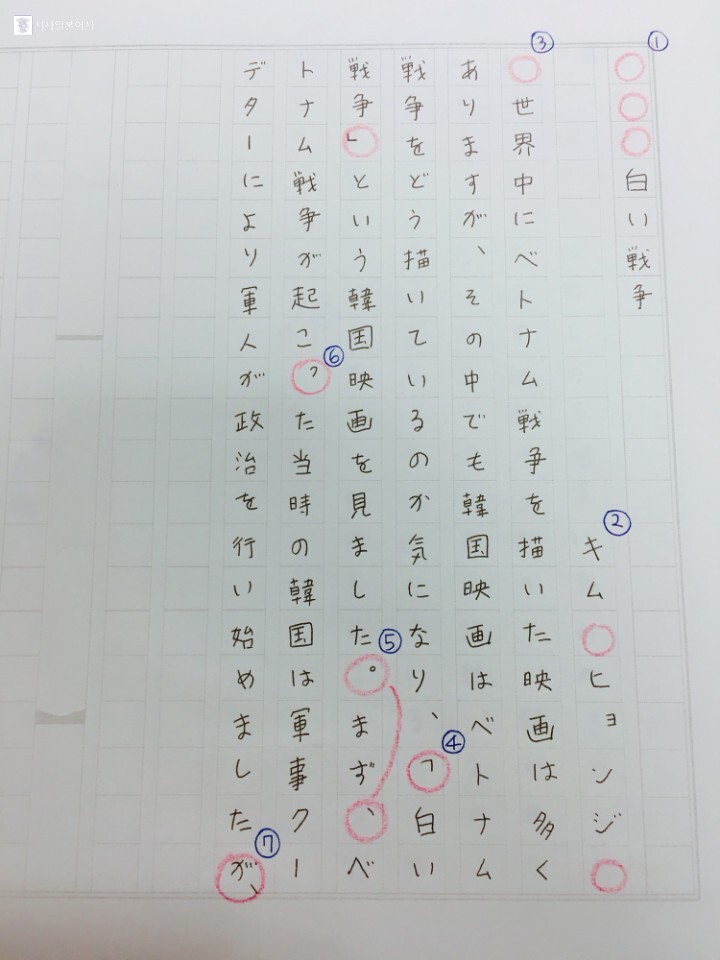 시사일본어사
①
白い戦争
②
キム ヒョンジ
③
世界中にベトナム戦争を描いた映画は多く
ありますが、その中でも韓国映画はベトナム
戦争をどう描いているのか気になり、「白い
④
戦争」という韓国映画を見ました。まず、ベ
⑤
トナム戦争が起こった当時の韓国は軍事クー
⑥
データーにより軍人が政治を行い始めましたが、
⑦